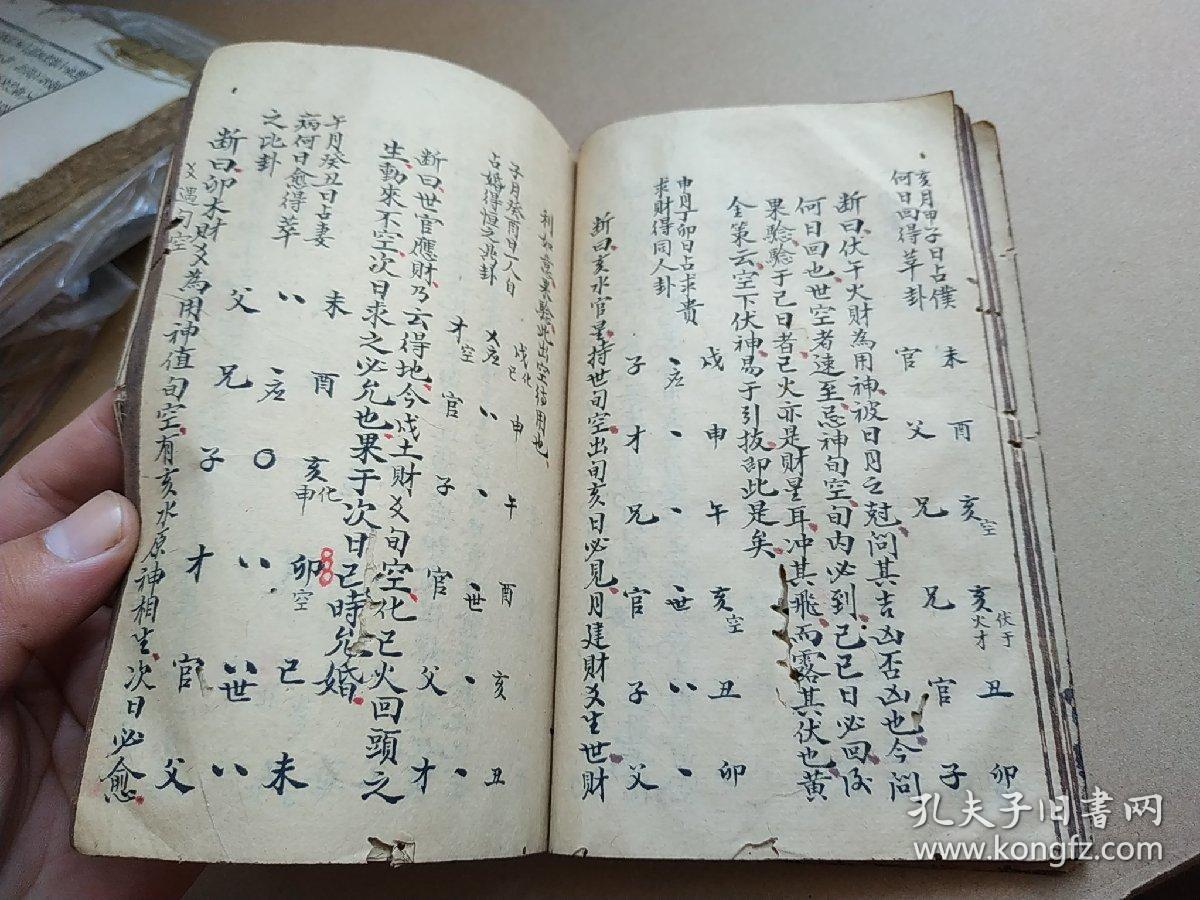 亥月甲子日占僕
何日回得革卦
未 酉 亥空 亥伏于火才 丑 卯
官 父 兄 兄 官 子
断曰伏于火財為用神被日月之尅問其吉凶否凶也今問
何日回也世空者速至忌神旬空旬内必到己巳日必回后
果驗驗于己日者己火亦是財星耳冲其飛而露其伏也黄
金策云空下伏神易于引拔即此是矣
申月丁卯日占求貴
求財得同人卦
戌 申 午 亥空 丑 卯
、应 、 、 、世 、、 、
子 才 兄 官 子 父
断曰亥水官星持世旬空出旬亥日必見月建財爻生世財
利如意果驗此出空值用也
子月癸酉日一人自
占婚得恒之兆卦
戌化巳 申 午 酉 亥 丑
乂应 、、 、 、世 、 、、
才空 官 子 官 父 才
断曰世官應財乃云得地今戌土財爻旬空化巳火回頭之
生動來不空次日求之必允也果于次日己時允婚
午月癸丑日占妻
病何日愈得萃
之比卦
未 酉 亥化申 卯空 巳 未
、、 、应 〇 、、 、、世 、、
父 兄 子 才 官 父
断曰卯木財爻為用神值旬空有亥水原神相生次日必愈
爻遇旬空
孔夫子旧書网
www.kongfz.com